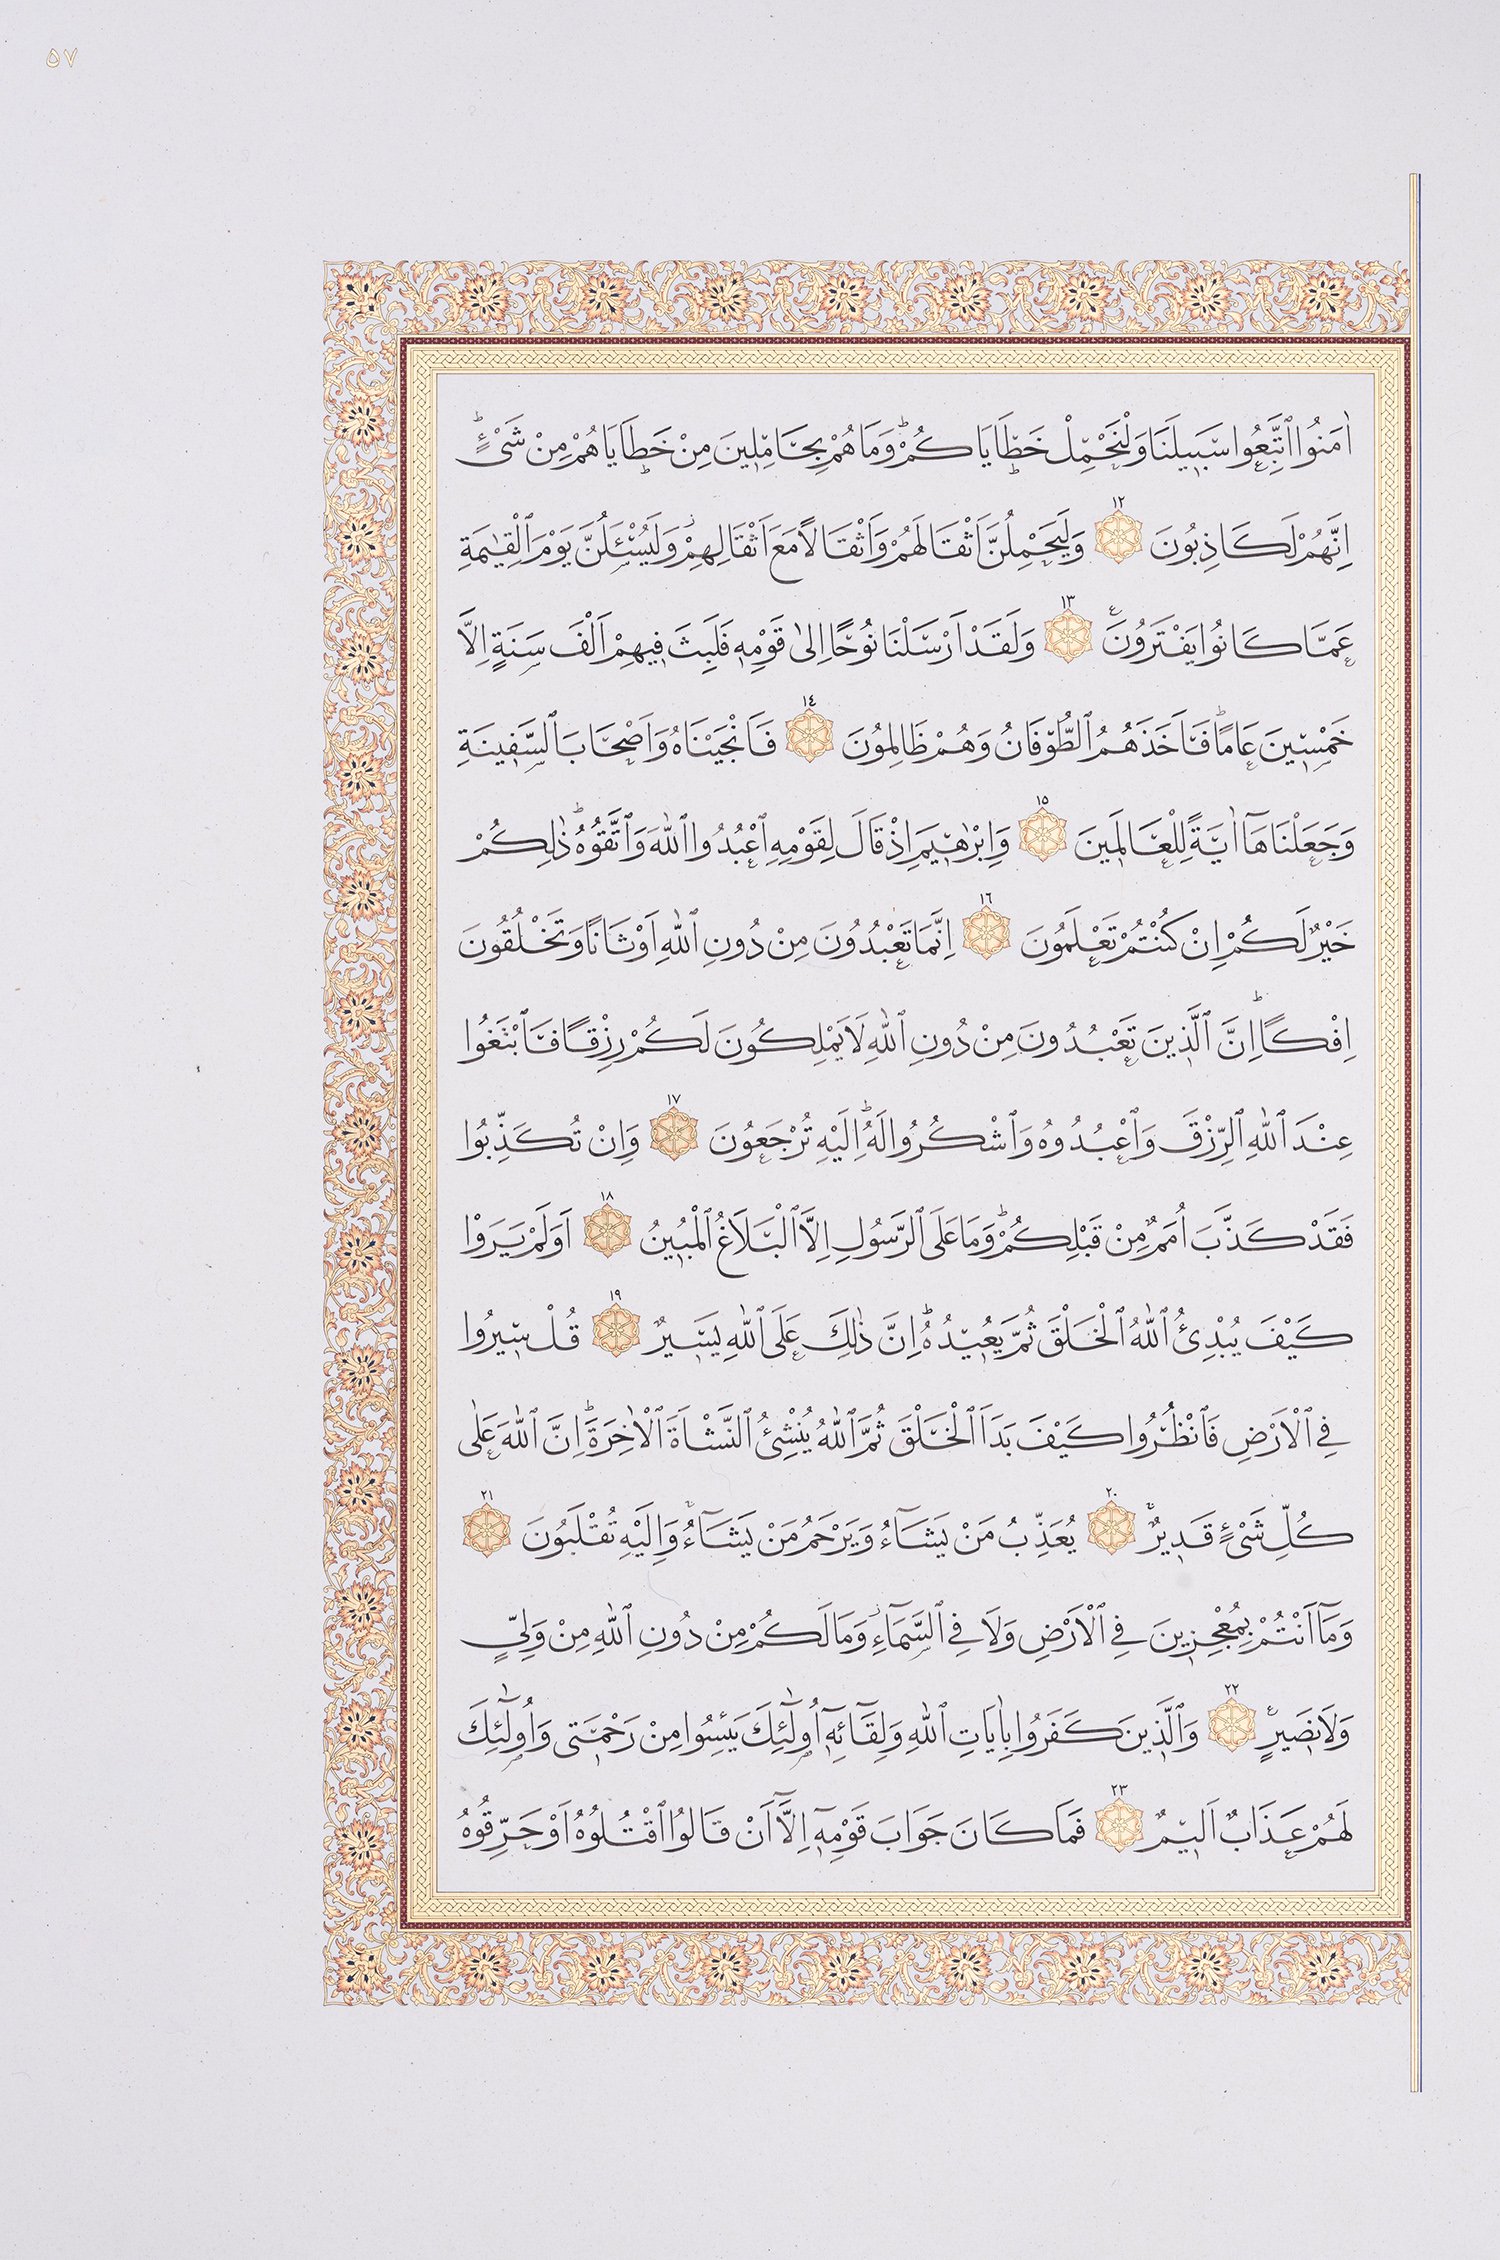 ٥٧
اٰمَنُوا اتَّبِعُوا سَبِيلَنَا وَلْنَحْمِلْ خَطَايَاكُمْ وَمَا هُمْ بِحَامِلِينَ مِنْ خَطَايَاهُمْ مِنْ شَيْءٍ
اِنَّهُمْ لَكَاذِبُونَ ١٢ وَلَيَحْمِلُنَّ اَثْقَالَهُمْ وَاَثْقَالًا مَعَ اَثْقَالِهِمْ وَلَيُسْـَٔلُنَّ يَوْمَ الْقِيٰمَةِ
عَمَّا كَانُوا يَفْتَرُونَ ١٣ وَلَقَدْ اَرْسَلْنَا نُوحًا اِلٰى قَوْمِهٖ فَلَبِثَ فِيهِمْ اَلْفَ سَنَةٍ اِلَّا
خَمْسِينَ عَامًا فَاَخَذَهُمُ الطُّوفَانُ وَهُمْ ظَالِمُونَ ١٤ فَاَنْجَيْنَاهُ وَاَصْحَابَ السَّفِينَةِ
وَجَعَلْنَاهَا اٰيَةً لِلْعَالَمِينَ ١٥ وَاِبْرٰهِيمَ اِذْ قَالَ لِقَوْمِهِ اعْبُدُوا اللّٰهَ وَاتَّقُوهُ ذٰلِكُمْ
خَيْرٌ لَكُمْ اِنْ كُنْتُمْ تَعْلَمُونَ ١٦ اِنَّمَا تَعْبُدُونَ مِنْ دُونِ اللّٰهِ اَوْثَانًا وَتَخْلُقُونَ
اِفْكًا اِنَّ الَّذِينَ تَعْبُدُونَ مِنْ دُونِ اللّٰهِ لَا يَمْلِكُونَ لَكُمْ رِزْقًا فَابْتَغُوا
عِنْدَ اللّٰهِ الرِّزْقَ وَاعْبُدُوهُ وَاشْكُرُوا لَهُ اِلَيْهِ تُرْجَعُونَ ١٧ وَاِنْ تُكَذِّبُوا
فَقَدْ كَذَّبَ اُمَمٌ مِنْ قَبْلِكُمْ وَمَا عَلَى الرَّسُولِ اِلَّا الْبَلَاغُ الْمُبِينُ ١٨ اَوَلَمْ يَرَوْا
كَيْفَ يُبْدِئُ اللّٰهُ الْخَلْقَ ثُمَّ يُعِيدُهُ اِنَّ ذٰلِكَ عَلَى اللّٰهِ يَسِيرٌ ١٩ قُلْ سِيرُوا
فِي الْاَرْضِ فَانْظُرُوا كَيْفَ بَدَاَ الْخَلْقَ ثُمَّ اللّٰهُ يُنْشِئُ النَّشْاَةَ الْاٰخِرَةَ اِنَّ اللّٰهَ عَلٰى
كُلِّ شَيْءٍ قَدِيرٌ ٢٠ يُعَذِّبُ مَنْ يَشَاءُ وَيَرْحَمُ مَنْ يَشَاءُ وَاِلَيْهِ تُقْلَبُونَ ٢١
وَمَا اَنْتُمْ بِمُعْجِزِينَ فِي الْاَرْضِ وَلَا فِي السَّمَاءِ وَمَا لَكُمْ مِنْ دُونِ اللّٰهِ مِنْ وَلِيٍّ
وَلَا نَصِيرٍ ٢٢ وَالَّذِينَ كَفَرُوا بِاٰيَاتِ اللّٰهِ وَلِقَائِهٖ اُولٰئِكَ يَئِسُوا مِنْ رَحْمَتِي وَاُولٰئِكَ
لَهُمْ عَذَابٌ اَلِيمٌ ٢٣ فَمَا كَانَ جَوَابَ قَوْمِهٖ اِلَّا اَنْ قَالُوا اقْتُلُوهُ اَوْ حَرِّقُوهُ